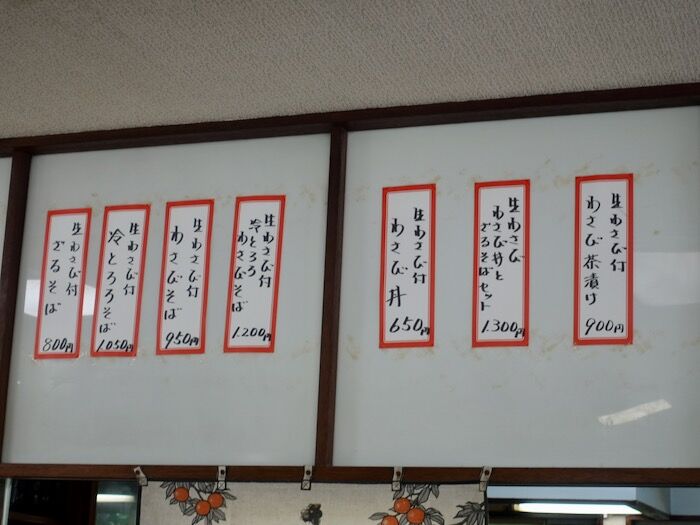 生わさび付
わさび茶漬け
900円
生わさび
わさび丼と
ざるそばセット
1300円
生わさび付
わさび丼
650円
生わさび付
冷とろろ
わさびそば
1.200円
生わさび付
わさびそば
950円
生わさび付
冷とろろそば
1.050円
生わさび付
ざるそば
800円